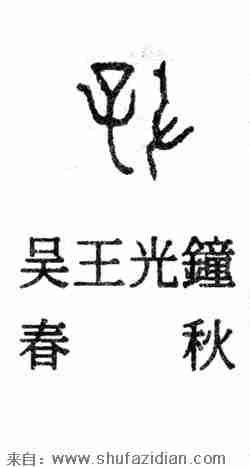 吴王光鐘
春 秋
来自：www.shufazidian.com